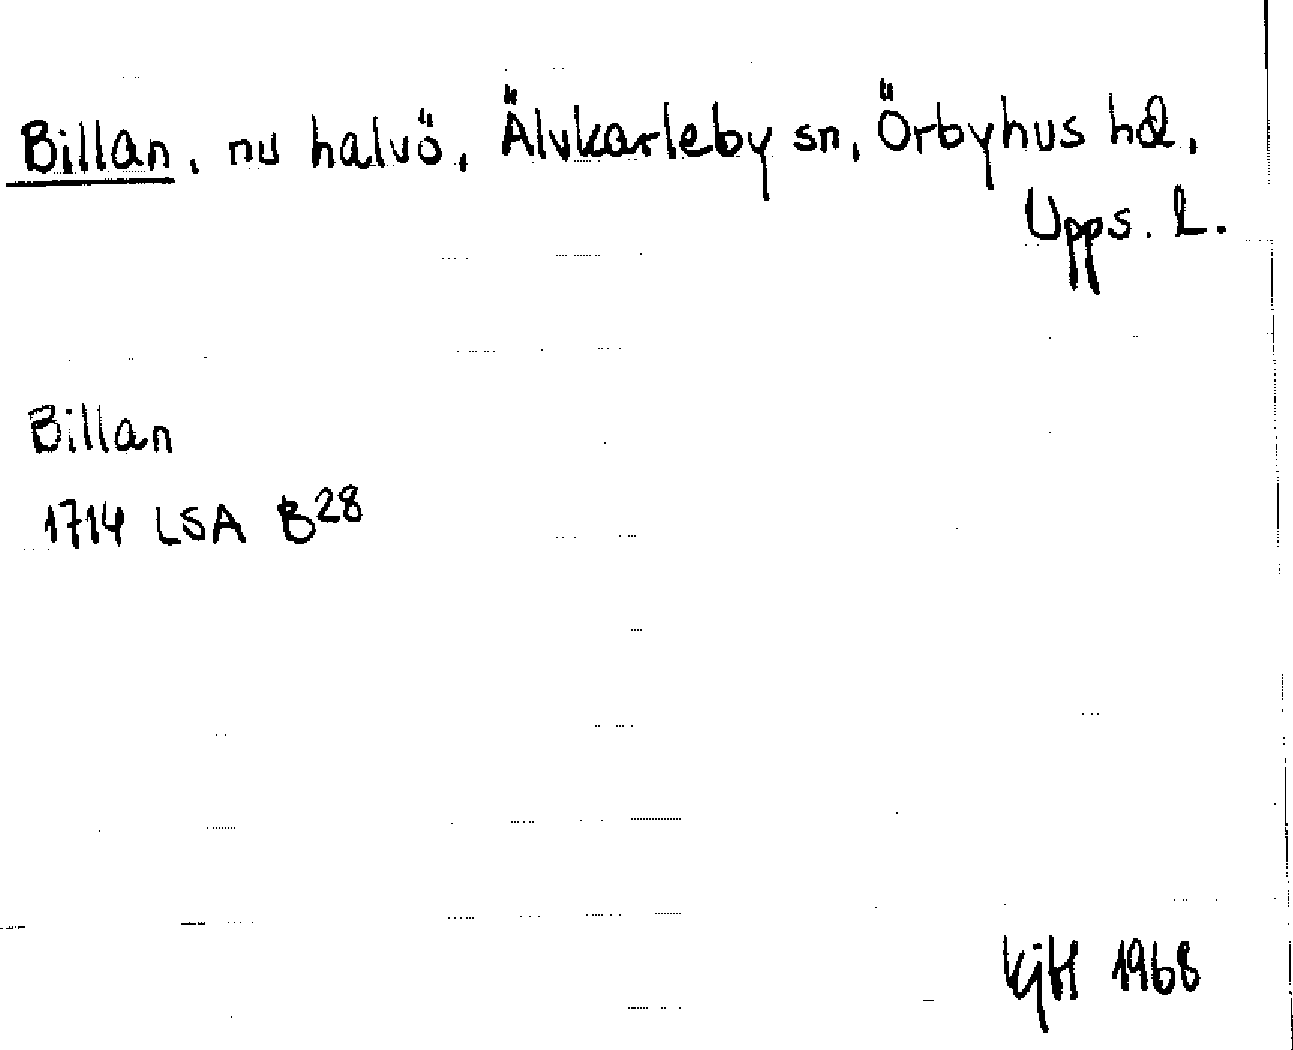 Billan, nu halvö, Älvkarleby sn, Örbyhus hd,
Upps. l.
Billan
1714 LSA B28
KjH 1968